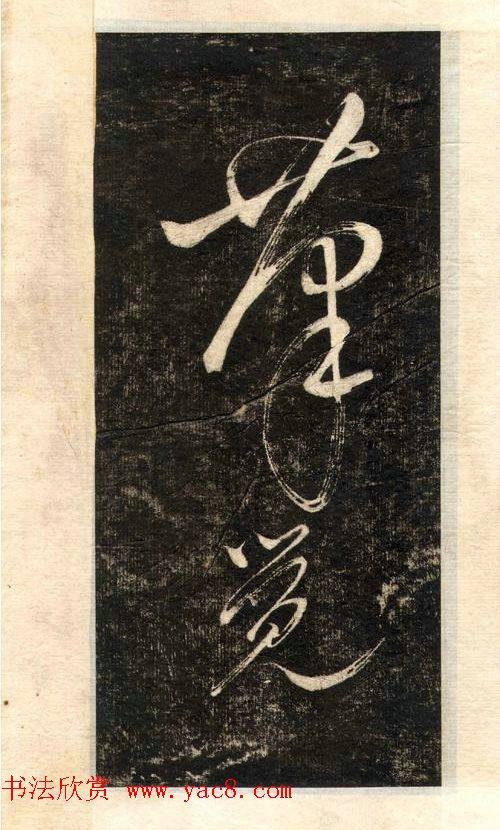 觉
书法欣赏 www.yac8.com